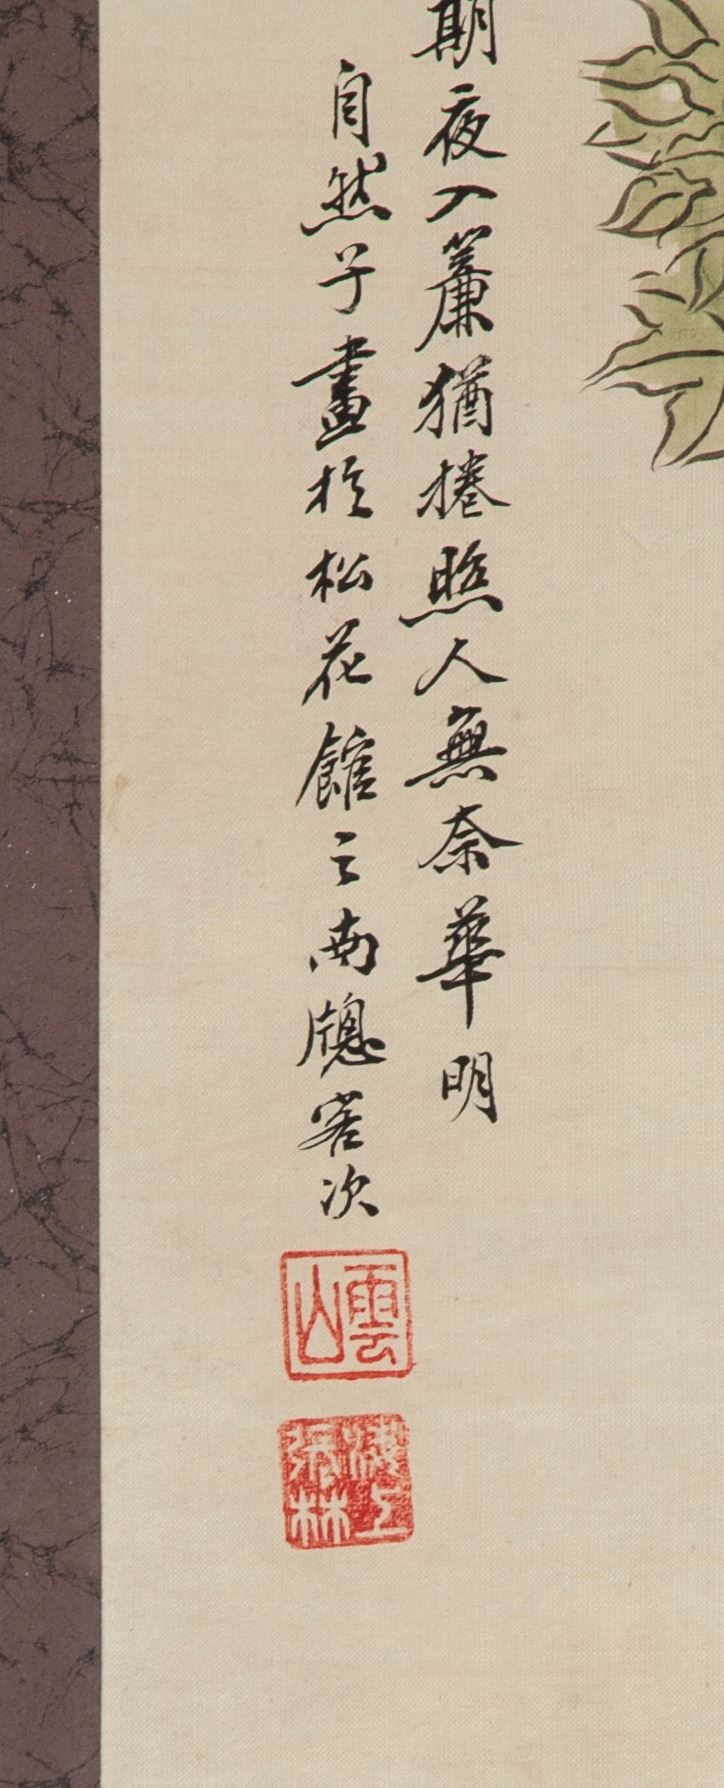 期夜入簾猶捲照人無奈華明
自然子畫於松花館之南牕客次
雲山
上張林